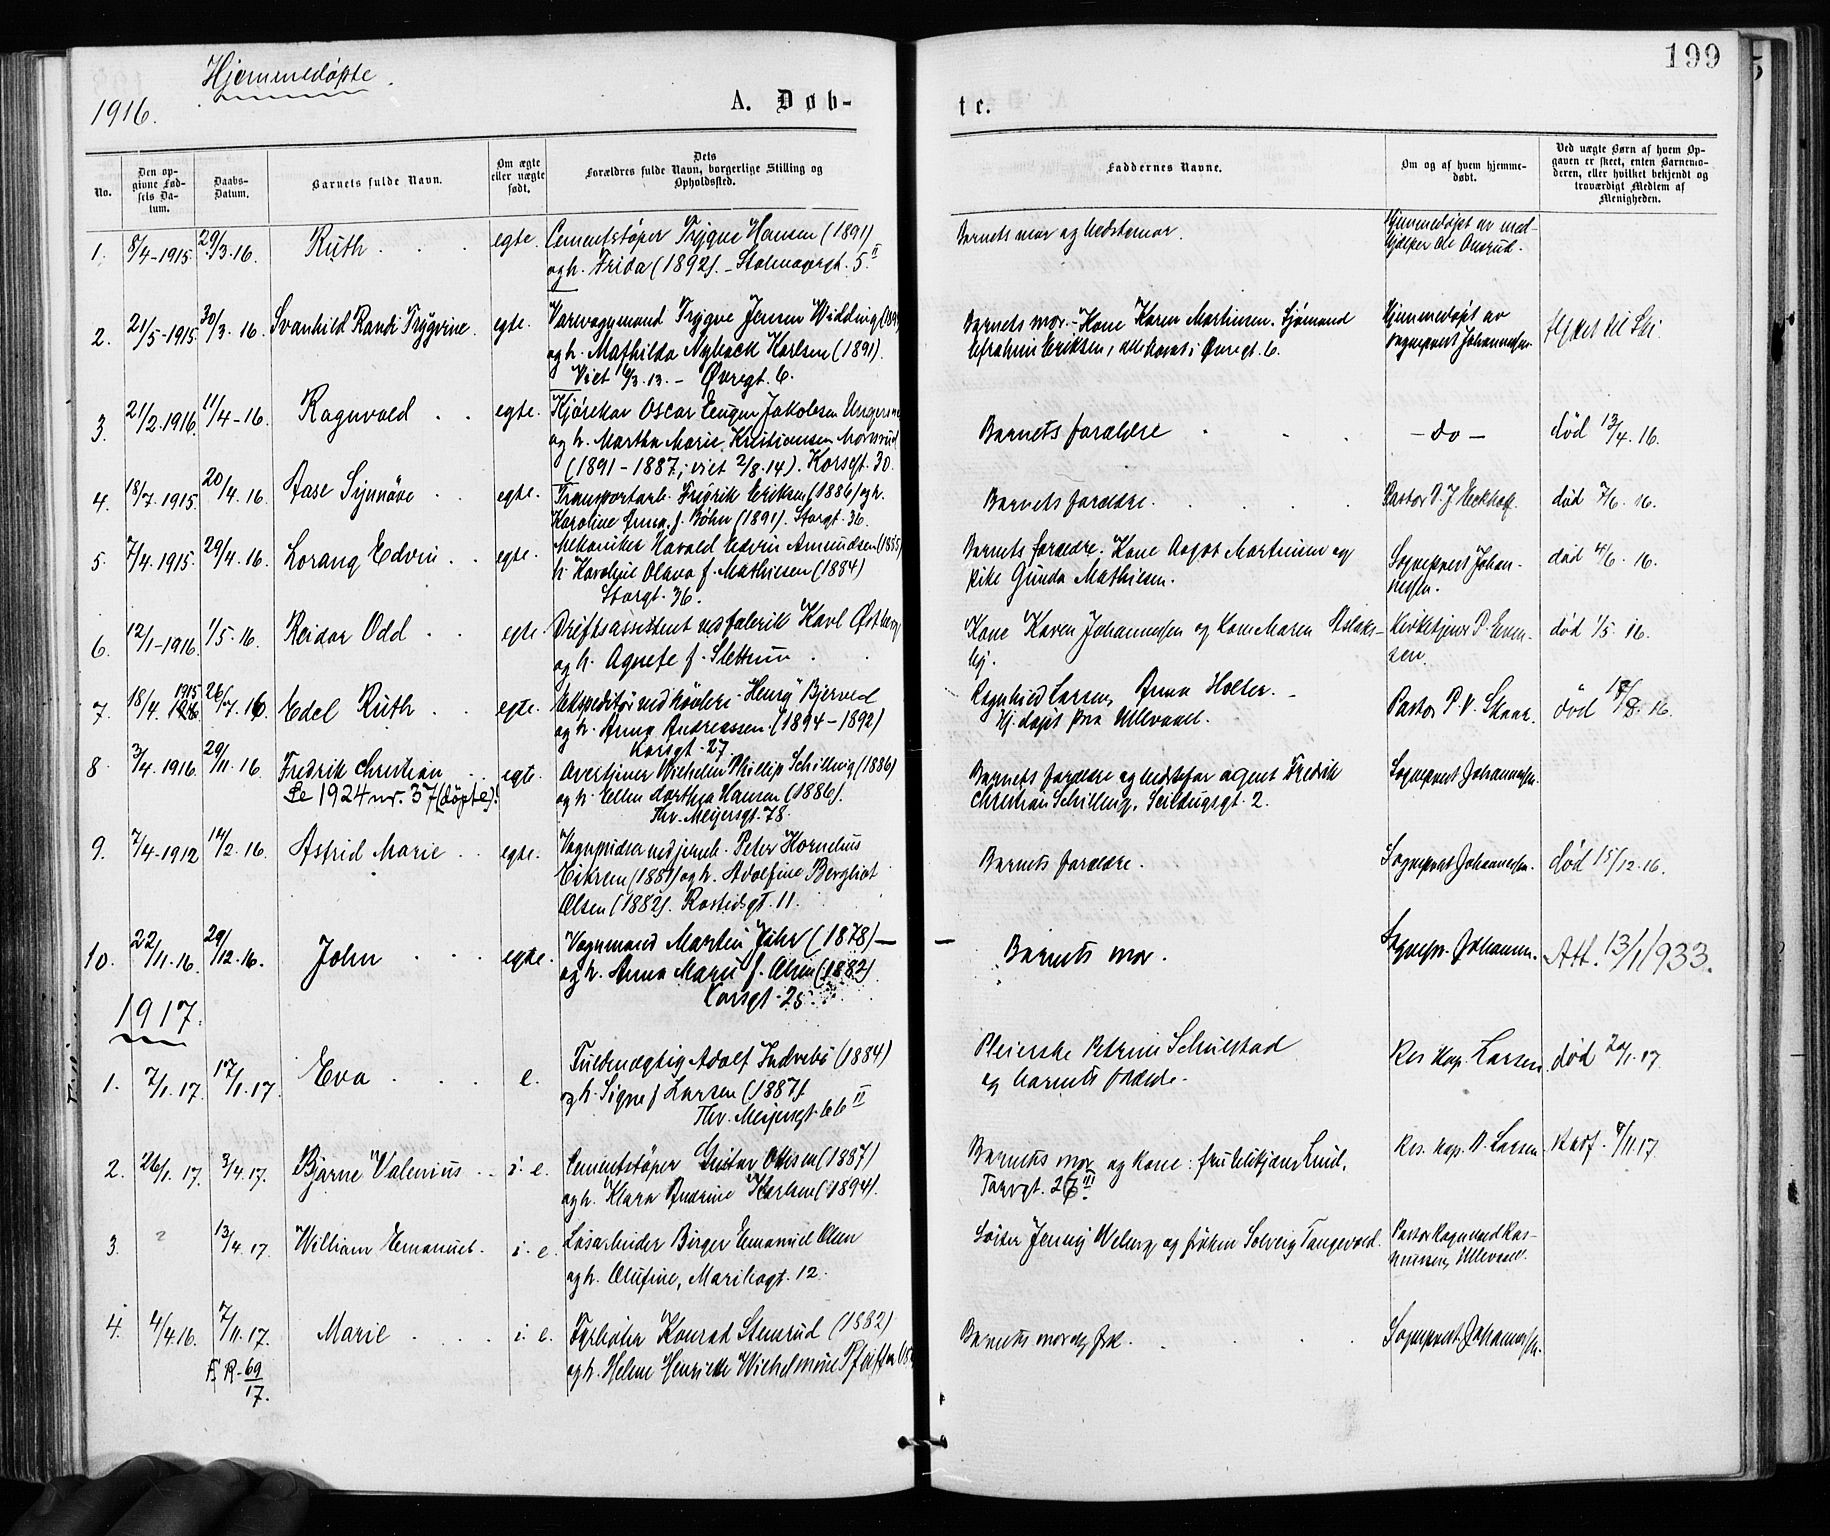 199
Hjemmedøpte.
1916.
A. Døb-
te.
No.
Den op-
givne Fød-
sels Da-
tum.
Daabs-
Datum.
Barnets fulde Navn.
Om ægte
eller uægte
født.
Dets
Forældres fulde Navn, borgerlige Stilling og
Opholdssted.
Faddernes Navne.
Om og af hvem hjemme-
døbt.
Ved uægte Børn af hvem Op-
gaven er skeet, enten Barnemo-
deren, eller hvilket bekjendt og
troværdigt Medlem af
Menigheden.
1. 8/4-1915. 29/3.16. Ruth egte. Cementstøper Trygve Hansen (1891)
og h. Frida (1892). 5.II
Barnets mor og bedstemor.
Hjemmedøpt av med-
hjelper
2. 21/5-1915. 30/3.16. Svanhild Randi Trygvine. egte. Trygve Jensen Widding
og h. Mathilda Nyback Karlsen (1891).
Viet 6/3.13. - Øvregt. 6.
Barnets mor. - Kone Karen Martinsen. Sjømand
Efraheim Eriksen, alle Øvregt. 6.
Hjemmedøpt av
sogneprest Johannessen
til Ski.
3. 21/2.1916. 11/4-16. Ragnvald egte. Kjørekar Oscar Eugen Jakobsen
og h. Martha Marie Kristiansen
(1891-1887, viet 2/8.14). Korsgt. 30.
Barnets forældre
- do -
død 13/4.16.
4. 18/7.1915. 20/4.16. Aase Synnøve egte. Transportarb. Fredrik Eriksen (1886) og h.
Karoline Anna f. Bøhn (1891). Storgt. 36.
Barnets forældre.
Pastor
død 7/6.16.
5. 7/4.1915. 29/4.16. Lorang Edvin egte. Mekaniker Harald Edvin Amundsen
h. Karoline Olava f. Mathisen (1884)
Storgt. 36.
Barnets forældre. Kone Aagot Martinsen og
pike Gunda Mathisen.
Sogneprest Johan-
nessen.
død 4/6.16.
6. 12/1-1916. 1/5.16. Reidar Odd egte Driftsassistent ved fabrik Karl Østberg
og h. Agnete f. Slettum
Kone Karen Johannessen og kone Maren
Kirketjener P. Even-
sen.
død 1/5.16.
7. 18/4. 1915 26/7.16 Edel Ruth egte. Ekspeditør Henry Bjerved
og h. Anna Andreassen (1894-1892)
Korsgt. 27.
Ragnhild Larsen, Anna Holter.
Hj. døpt Ullevaal.
Pastor P. V.
død 17/8.16.
8 3/4.1916. 29/11.16. Fredrik Christian egte. Wilhelm Phillip Schilling (1886)
Se 1924 nr. 37 (døpte).
og h. Ellen Dorthea Hansen (1886).
Thv. Meijersgt. 78.
Barnets forældre og bedstefar agent Fredrik
Christian Schilling, Seildugsgt. 2.
Sogneprest Johannessen.
9. 7/4-1912 14/12.16. Astrid Marie egte. Vognpudser ved jernb. Peter Kornelius
og h. Adolfine Bergliot
Olsen (1882). 11.
Barnets forældre.
Sogneprest Johannessen.
død 15/12.16.
10. 22/11.16. 29/12.16. John egte. Vognmand Martin (1878) -
og h. Anna Marie f. Olsen (1882)
Korsgt. 25
- Barnets mor.
Sognepr. Johannessen.
Att. 13/1 1933.
1917.
1. 7/1.17. 17/1.17. Eva e. Fuldmægtig Adolf Indrebø (1884)
og h. Signe f Larsen (1887).
Thv. Meijersgt. 66 II
Pleierske Petrine Schulstad
og barnets forældre.
Res. kap. Larsen
død 20/1.17.
2. 26/1.17. 3/4.17. Bjarne Valenius i. e. Cementstøper Gustav Olsen (1887)
og h. Klara Andrine Karlsen (1894).
Barnets mor og kone
Torvgt. 26III
Res. kap. Larsen
Konf. 4/11.17.
3. ? 13/4.17. William Emanuel. i. e. Løsarbeider Birger Emanuel Olsen
og h. Olufine, Maribogt. 12.
Søster Jenny Weberg og frøken Solveig Tangevald.
Pastor Ragnvald Ras-
mussen, Ullevaal.
4. 4/4.16. 7/11.17. Marie i. e. Fyrbøter Konrad Stensrud (1882)
F. R. 69/17.
og h. Helene Henriette Wilhelmine
Barnets mor og
Sogneprest Johannessen.